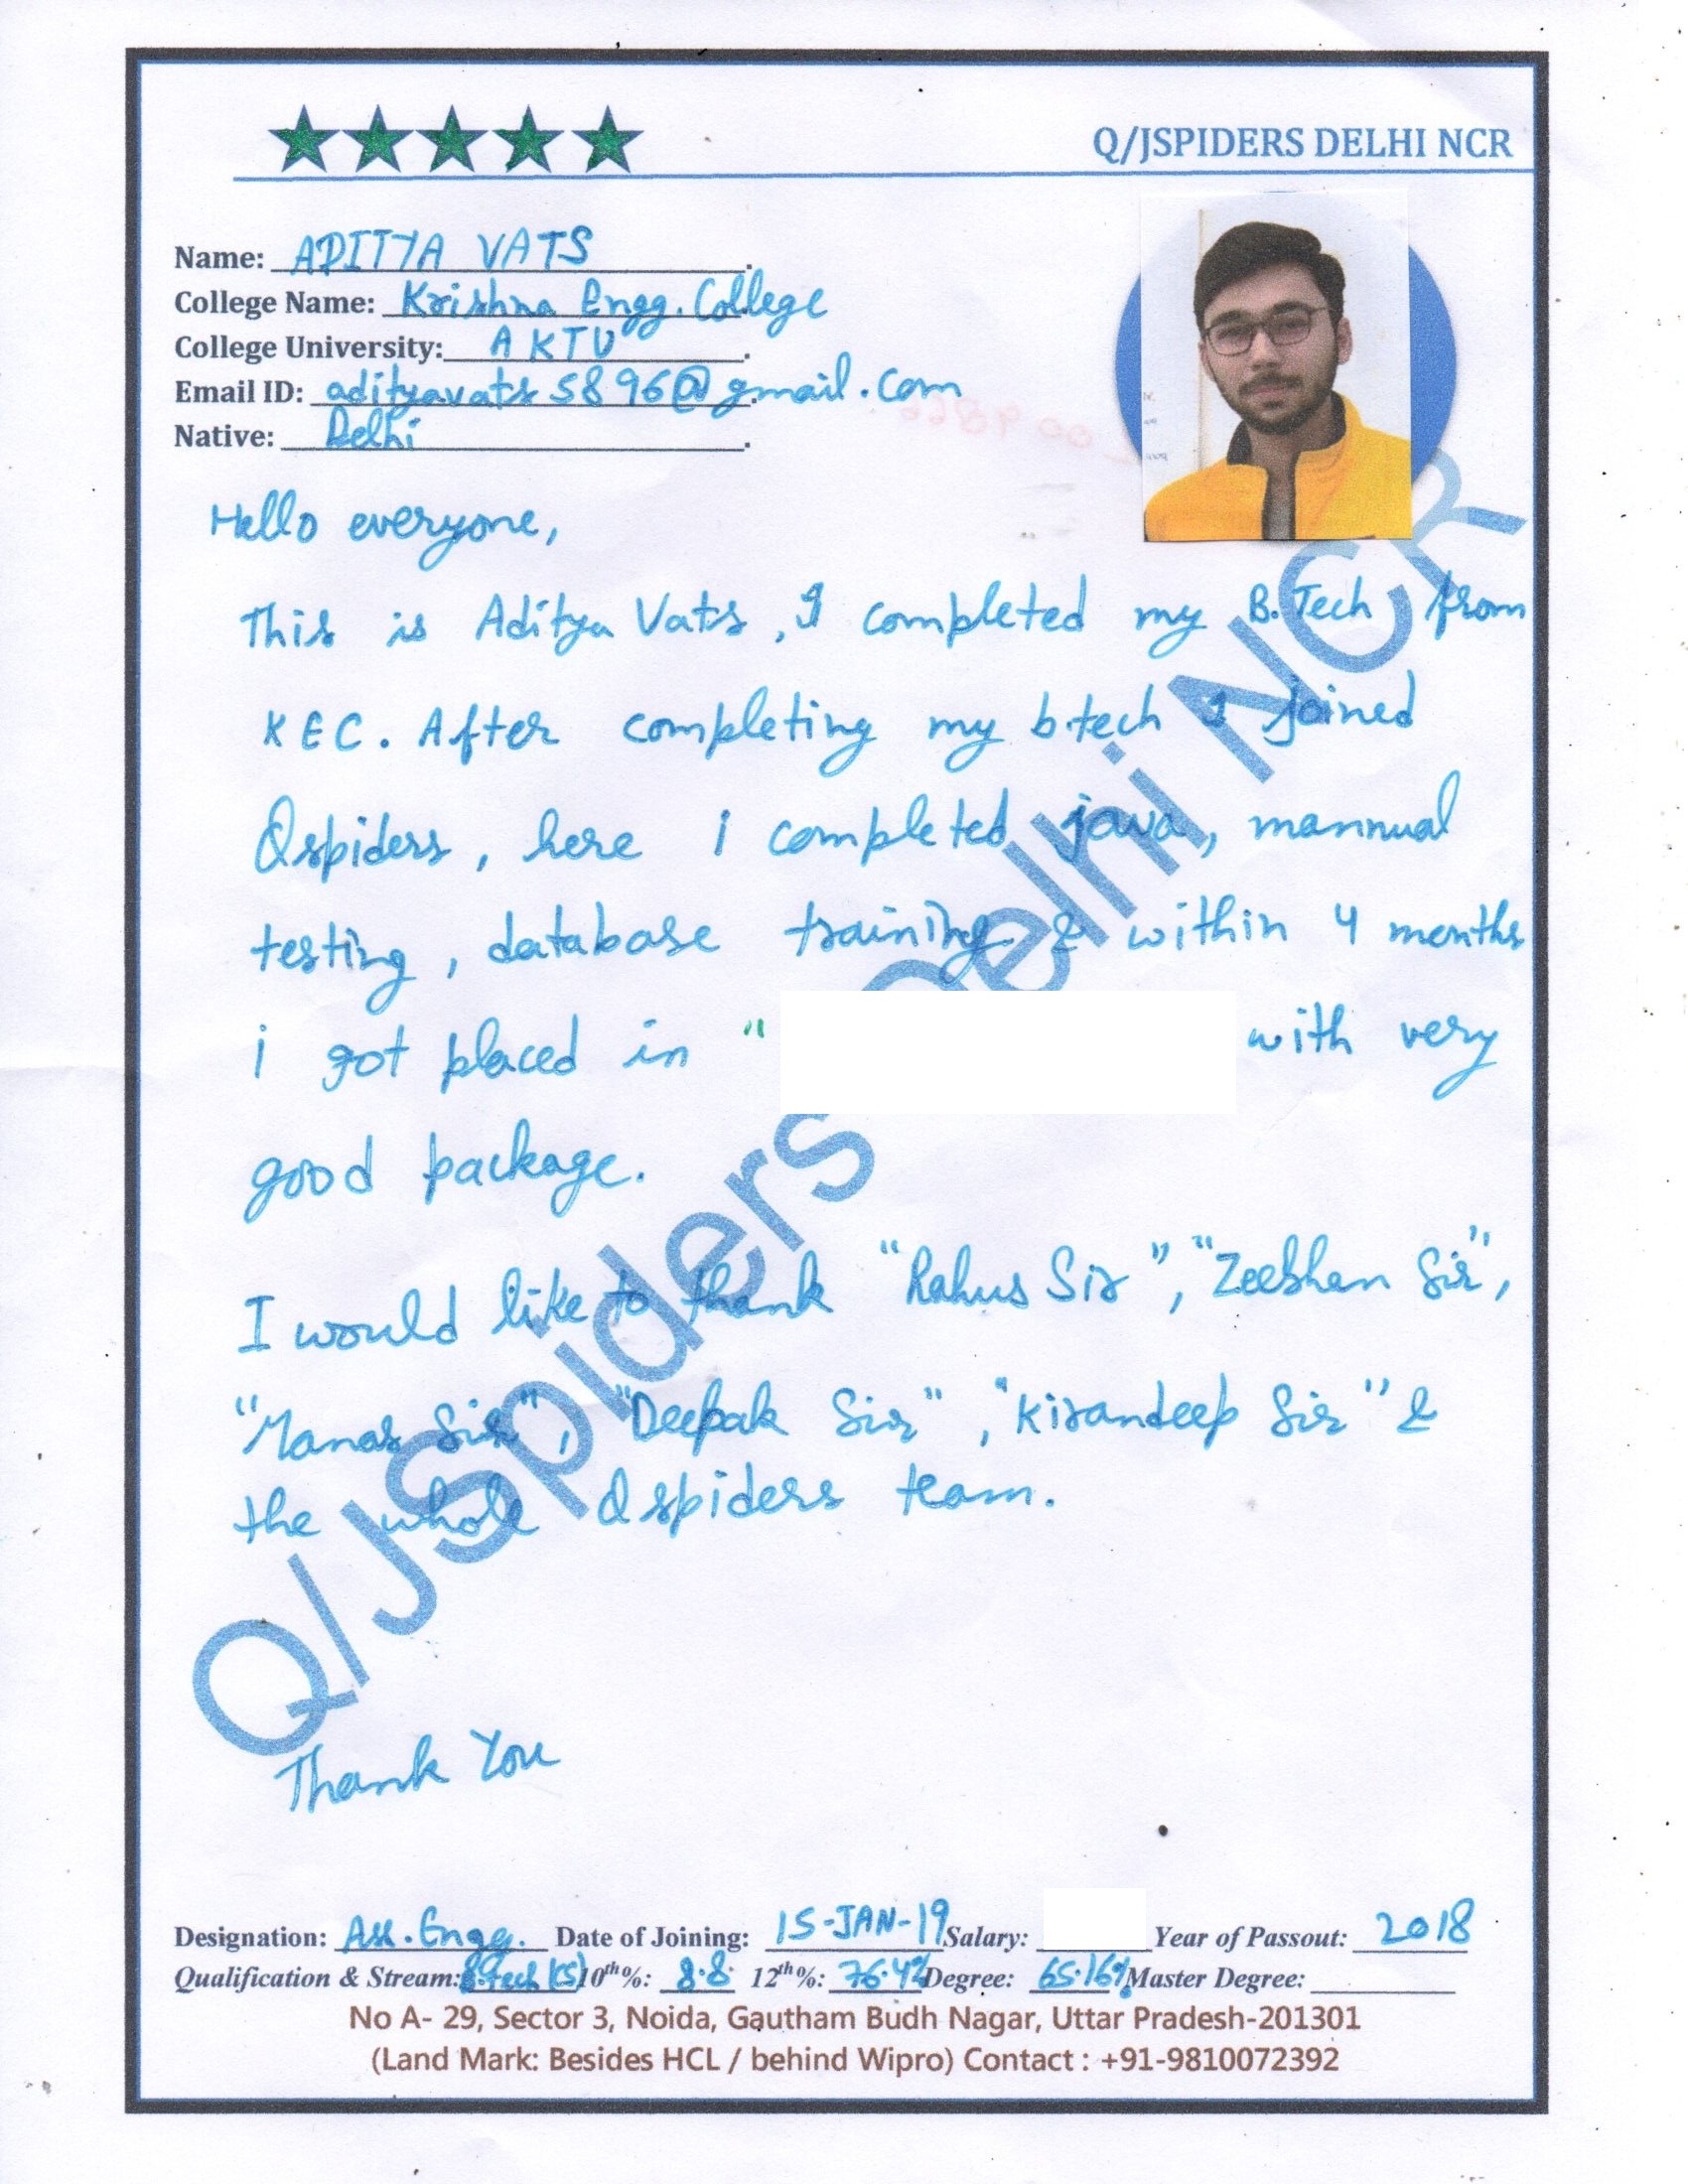 Q/JSPIDERS DELHI NCR
Name: ADITYA VATS.
College Name: Krishna Engg. College
College University: AKTU.
Email ID: adityavats5896@gmail.com
Native: Delhi.
Hello everyone,
This is Aditya Vats, I completed my B.Tech from
KEC. After completing my b.tech I joined
Qspiders, here i completed java, mannual
testing, database training & within 4 months
i got placed in " with very
good package.
I would like to thank "Rahus Sir", "Zeeshan Sir",
"Manas Sir", "Deepak Sir", "Kirandeep Sir" &
the whole Qspiders team.
Thank You
Q/JSpiders Delhi NCR
Designation: Ass. Engg. Date of Joining: 15-JAN-19 Salary: Year of Passout: 2018
Qualification & Stream: B.tech (CS) 10th%: 8.8 12th%: 76.4% Degree: 65.16% Master Degree:
No A- 29, Sector 3, Noida, Gautham Budh Nagar, Uttar Pradesh-201301
(Land Mark: Besides HCL / behind Wipro) Contact : +91-9810072392